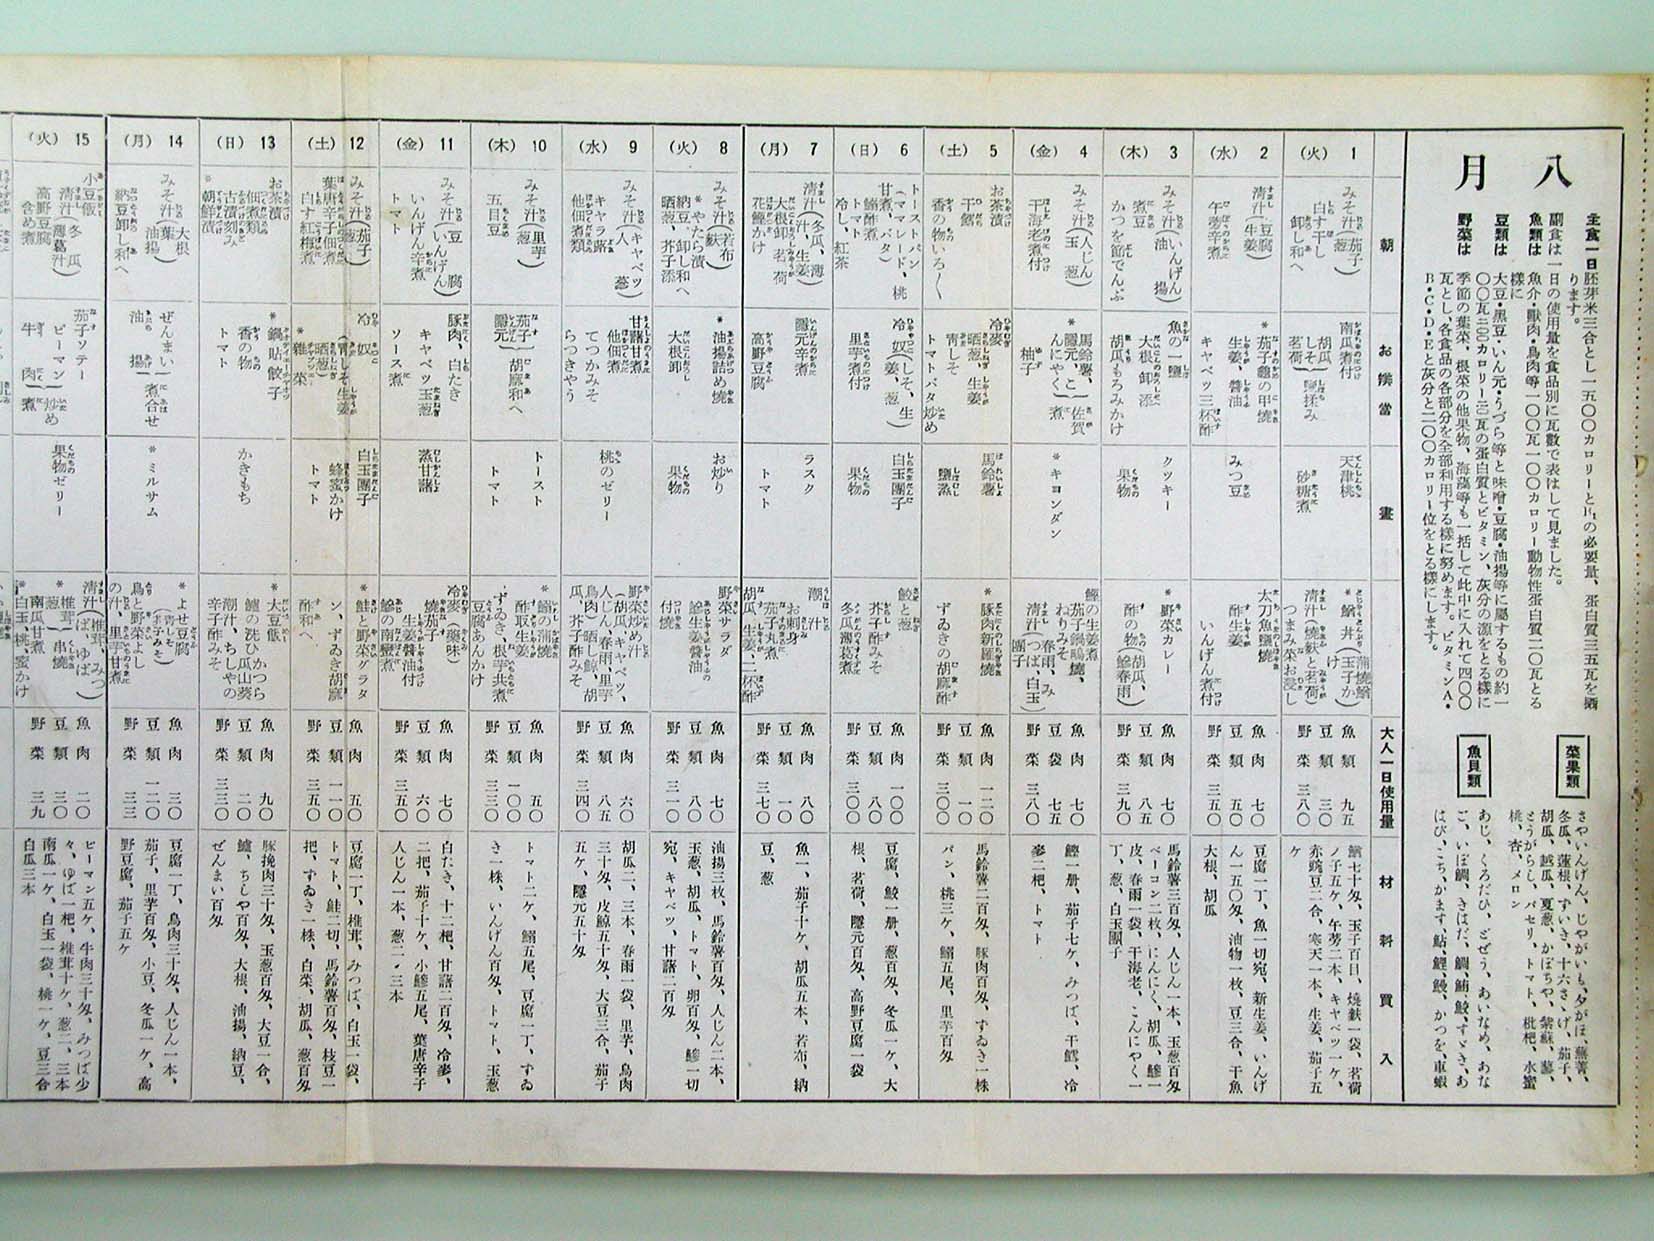 八月
主食一日胚芽米三合とし一五〇〇カロリーとB₁の必要量、蛋白質三五瓦を摂
ります。
副食は一日の使用量を食品別に瓦數で表はして見ました。
魚類は 魚介・獸肉・鳥肉等一〇〇瓦一〇〇カロリー動物性蛋白質二〇瓦とる
樣に
豆類は 大豆・黒豆・いん元・うづら等と味噌・豆腐・油揚等に屬するもの約一
〇〇瓦三〇〇カロリー三〇瓦の蛋白質とビタミン、灰分の源をとる樣に
野菜は 季節の葉菜、根菜の他果物、海藻等も一括して此中に入れて四〇〇
瓦とし、各食品の各部分を全部利用する樣に努めます。ビタミンA・
B・C・D・Eと灰分と二〇〇カロリー位をとる樣にします。
菜果類
さやいんげん、じやがいも、夕がほ、蕪菁、
冬瓜、蓮根、すいき、十六さゝげ、茄子、
胡瓜、越瓜、夏葱、かぼちや、紫蘇、蓼、
とうがらし、パセリ、トマト、枇杷、水蜜
桃、杏、メロン
魚貝類
あじ、くろだひ、どぜう、あいなめ、あな
ご、いぼ鯛、きはだ、鯛、鮪、鮫、すゞき、あ
はび、こち、かます、鮎、鯉、鰻、かつを、車蝦
朝
お辨當
晝
大人一日使用量
材料買入
1（火）
みそ汁（茄子、葱）
白す干し
卸し和へ
南瓜煮付
胡瓜、しそ、茗荷 鹽揉み
天津桃
砂糖煮
*鰌丼（蒲燒鰌、玉子かけ）
清汁（燒麩と茗荷）
つまみ菜お浸し
魚類 九五
豆類 三〇
野菜 三八〇
鰌七十匁、玉子百目、燒麩一袋、茗荷
ノ子五ケ、午蒡二本、キャベツ一ケ、
赤豌豆二合、寒天一本、生姜、茄子五
ケ
2（水）
清汁（豆腐、生姜）
午蒡辛煮
*茄子龜の甲燒
生姜、醤油
キャベツ三杯酢
みつ豆
太刀魚鹽燒
酢生姜
いんげん煮付
魚肉 七〇
豆類 五〇
野菜 三五〇
豆腐一丁、魚一切宛、新生姜、いんげ
ん一五〇匁、油物一枚、豆三合、干魚
大根、胡瓜
3（木）
みそ汁（いんげん、油揚）
煮豆
かつを節でんぶ
魚の一鹽
大根卸添
胡瓜もろみかけ
クッキー
果物
*野菜カレー
酢の物（胡瓜、鯵、春雨）
魚肉 七〇
豆類 八五
野菜 三九〇
馬鈴薯三百匁、人じん一本、玉葱百匁
ベーコン二枚、にんにく、胡瓜、鯵一
皮、春雨一袋、干海老、こんにやく一
丁、葱、白玉團子
4（金）
みそ汁（人じん、玉葱）
干海老煮付
*馬鈴薯、隱元、こんにやく 佐賀煮
柚子
*キョンダン
鰹の生姜煮
茄子鍋鴫燒、ねりみそ
清汁（春雨、みつば、白玉團子）
魚肉 七〇
豆袋 七五
野菜 三八〇
鰹一册、茄子七ケ、みつば、干鱈、冷
麥二把、トマト
5（土）
お茶漬
干鱈
香の物いろ〱
冷麥
晒葱、生姜
青しそ
トマトバタ炒め
馬鈴薯
鹽蒸
*豚肉新羅燒
ずゐきの胡麻酢
魚肉 一二〇
豆類 一〇
野菜 三〇〇
馬鈴薯二百匁、豚肉百匁、すゐき一株
パン、桃三ケ、鰯五尾、里芋百匁
6（日）
トーストパン
（ママレード、桃甘煮、バタ）
鰯酢煮
トマト
冷し、紅茶
冷奴（しそ、生姜、葱）
里芋煮付
白玉團子
果物
鮫と葱
芥子酢みそ
冬瓜薄葛煮
魚肉 一〇〇
豆類 八〇
野菜 三〇〇
豆腐、鮫一册、葱百匁、冬瓜一ケ、大
根、茗荷、隱元百匁、高野豆腐一袋
7（月）
清汁（冬瓜、薄汁、生姜）
大根卸、若荷
花鰹かけ
隱元辛煮
高野豆腐
ラスク
トマト
潮汁
お刺身
茄子丸煮
胡瓜、生姜、二杯酢
魚肉 八〇
豆類 一〇
野菜 三七〇
魚一、茄子十ケ、胡瓜五本、若布、納
豆、葱
8（火）
みそ汁（若布、麩）
*やたら漬
納豆、卸し和へ
晒葱、芥子添
*油揚詰め燒
大根卸
お炒り
果物
野菜サラダ
鯵生姜醤油の
付燒
魚肉 七〇
豆類 八〇
野菜 三一〇
油揚三枚、馬鈴薯百匁、人じん二本、
玉葱、胡瓜、トマト、卵百匁、鯵一切
宛、キャベツ、甘藷二百匁
9（水）
みそ汁（キャベツ、人蔘）
キャラ蕗
他佃煮類
甘藷甘煮
他佃煮
てつかみそ
らつきやう
桃のゼリー
野菜炒め汁
（胡瓜、キャベツ、人じん、春雨、里芋、鳥肉）
晒し鯨、胡瓜、芥子酢みそ
魚肉 六〇
豆類 八五
野菜 三四〇
胡瓜二、三本、春雨一袋、里芋、鳥肉
三十匁、皮鯨五十匁、大豆三合、茄子
五ケ、隱元五十匁
10（木）
みそ汁（里芋、葱）
五目豆
茄子、隱元 胡麻和へ
トースト
トマト
*鰯の蒲燒
酢取生姜
ずゐき、根芋共煮
豆腐あんかけ
魚肉 五〇
豆類 一〇〇
野菜 三三〇
トマト二ケ、鰯五尾、豆腐一丁、すゐ
き一株、いんげん百匁、トマト、玉葱
11（金）
みそ汁（豆腐、いんげん）
いんげん辛煮
トマト
豚肉、白たき
キャベツ、玉葱
ソース煮
蒸甘藷
冷麥（藥味）
燒茄子
生姜醤油付
鯵の南蠻煮
魚肉 七〇
豆類 六〇
野菜 三五〇
白たき、十二把、甘藷二百匁、冷麥、
二把、茄子十ケ、小鯵五尾、葉唐辛子
人じん一本、葱二・三本
12（土）
みそ汁（茄子、葱）
葉唐辛子佃煮
白す紅梅煮
冷奴
（青しそ、生姜、晒葱）
*雜菜
白玉團子
蜂蜜かけ
トマト
*鮭と野菜グラタン、ずゐき胡麻酢和へ
魚肉 五〇
豆類 一一〇
野菜 三五〇
豆腐一丁、椎茸、みつば、白玉一袋、
トマト、鮭二切、馬鈴薯百匁、枝豆一
把、すゐき一株、白菜、胡瓜、葱百匁
13（日）
お茶漬
佃煮類
古漬刻み
*朝鮮漬
*鍋貼餃子
香の物
トマト
かきもち
*大豆飯
鱸の洗ひ、かつら瓜、山葵
潮汁、ちしやの辛子酢みそ
魚肉 九〇
豆類 二〇
野菜 三三〇
豚挽肉三十匁、玉葱百匁、大豆一合、
鱸、ちしや百匁、大根、油揚、納豆、
ぜんまい百匁
14（月）
みそ汁（大根、葉、油揚）
納豆卸し和へ
ぜんまい、油揚 煮合せ
*ミルサム
*よせ豆腐
（青しそ、玉子みそ）
鳥と野菜よしの汁、里芋甘煮
魚肉 三〇
豆類 一二〇
野菜 三三
豆腐一丁、鳥肉三十匁、人じん一本、
茄子、里芋百匁、小豆、冬瓜一ケ、高
野豆腐、茄子五ケ
15（火）
小豆飯
清汁（冬瓜、薄葛汁）
高野豆腐
含め煮
茄子ソテー
ピーマン、牛肉 炒め煮
果物ゼリー
清汁（椎茸、みつば、ゆば）
*椎茸、葱 串燒
南瓜甘煮
*白玉、桃、蜜かけ
魚肉 二〇
豆類 三〇
野菜 三九
ピーマン五ケ、牛肉三十匁、みつば少
々、ゆば一把、椎茸十ケ、葱二、三本
南瓜一ケ、白玉一袋、桃一ケ、豆三合
白瓜三本